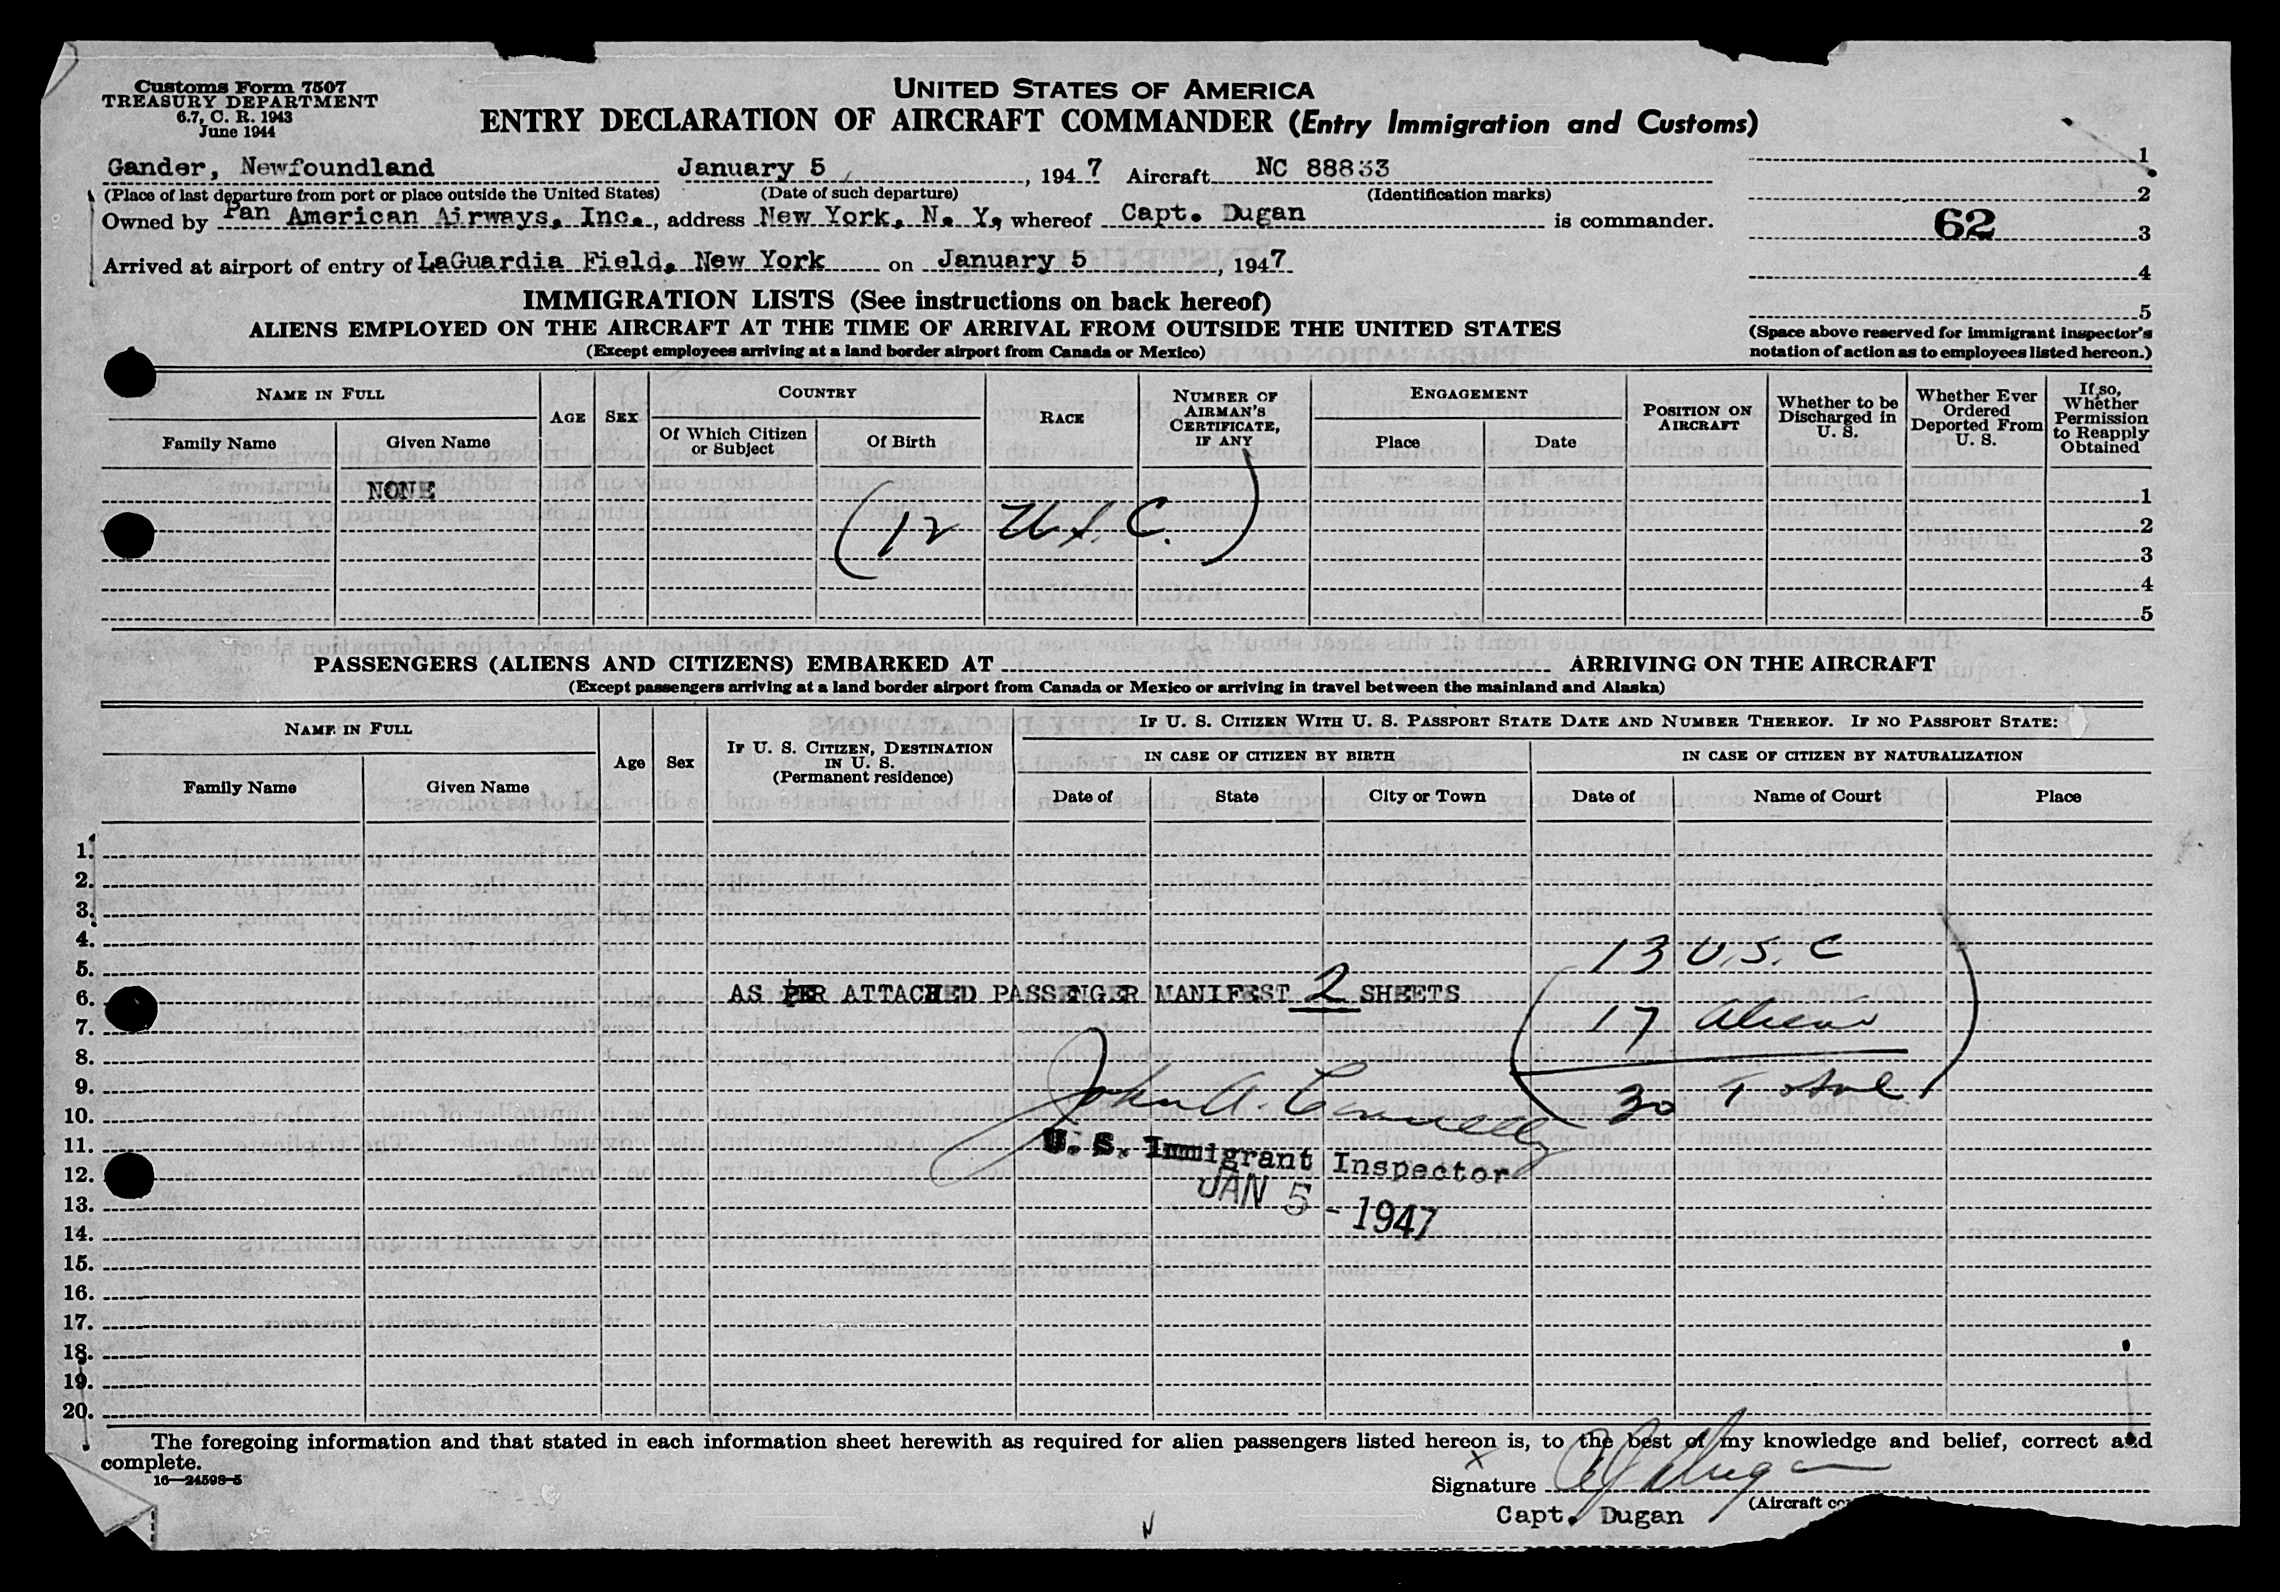 Customs Form 7507
TREASURY DEPARTMENT
6.7, C. R. 1943
June 1944
UNITED STATES OF AMERICA
ENTRY DECLARATION OF AIRCRAFT COMMANDER (Entry Immigration and Customs)
Gander, Newfoundland January 5, 1947 Aircraft NC 88833
(Place of last departure from port or place outside the United States) (Date of such departure) (Identification marks)
Owned by Pan American Airways, Inc., address New York, N. Y., whereof Capt. Dugan is commander.
Arrived at airport of entry of LaGuardia Field, New York on January 5, 1947
1
2
62 3
4
5
(Space above reserved for immigrant inspector's
notation of action as to employees listed hereon.)
IMMIGRATION LISTS (See instructions on back hereof)
ALIENS EMPLOYED ON THE AIRCRAFT AT THE TIME OF ARRIVAL FROM OUTSIDE THE UNITED STATES
(Except employees arriving at a land border airport from Canada or Mexico)
NAME IN FULL
Family Name
Given Name
AGE
SEX
COUNTRY
Of Which Citizen
or Subject
Of Birth
RACE
NUMBER OF
AIRMAN'S
CERTIFICATE,
IF ANY
ENGAGEMENT
Place
Date
POSITION ON
AIRCRAFT
Whether to be
Discharged in
U. S.
Whether Ever
Ordered
Deported From
U. S.
If so,
Whether
Permission
to Reapply
Obtained
NONE 1
(12 U.S.C.) 2
3
4
5
PASSENGERS (ALIENS AND CITIZENS) EMBARKED AT ARRIVING ON THE AIRCRAFT
(Except passengers arriving at a land border airport from Canada or Mexico or arriving in travel between the mainland and Alaska)
NAME IN FULL
Family Name
Given Name
Age
Sex
IF U. S. CITIZEN, DESTINATION
IN U. S.
(Permanent residence)
IF U. S. CITIZEN WITH U. S. PASSPORT STATE DATE AND NUMBER THEREOF. IF NO PASSPORT STATE:
IN CASE OF CITIZEN BY BIRTH
Date of
State
City or Town
IN CASE OF CITIZEN BY NATURALIZATION
Date of
Name of Court
Place
1.
2.
3.
4. 13 U.S.C
5.
6. AS PER ATTACHED PASSENGER MANIFEST 2 SHEETS
7. 17 Aliens
8.
9. 30 Total
10. John A. Connelly
11. U. S. Immigrant Inspector
12. JAN 5 - 1947
13.
14.
15.
16.
17.
18.
19.
20.
The foregoing information and that stated in each information sheet herewith as required for alien passengers listed hereon is, to the best of my knowledge and belief, correct and
complete.
16—24598-5
x
Signature Dugan
Capt. Dugan (Aircraft
N